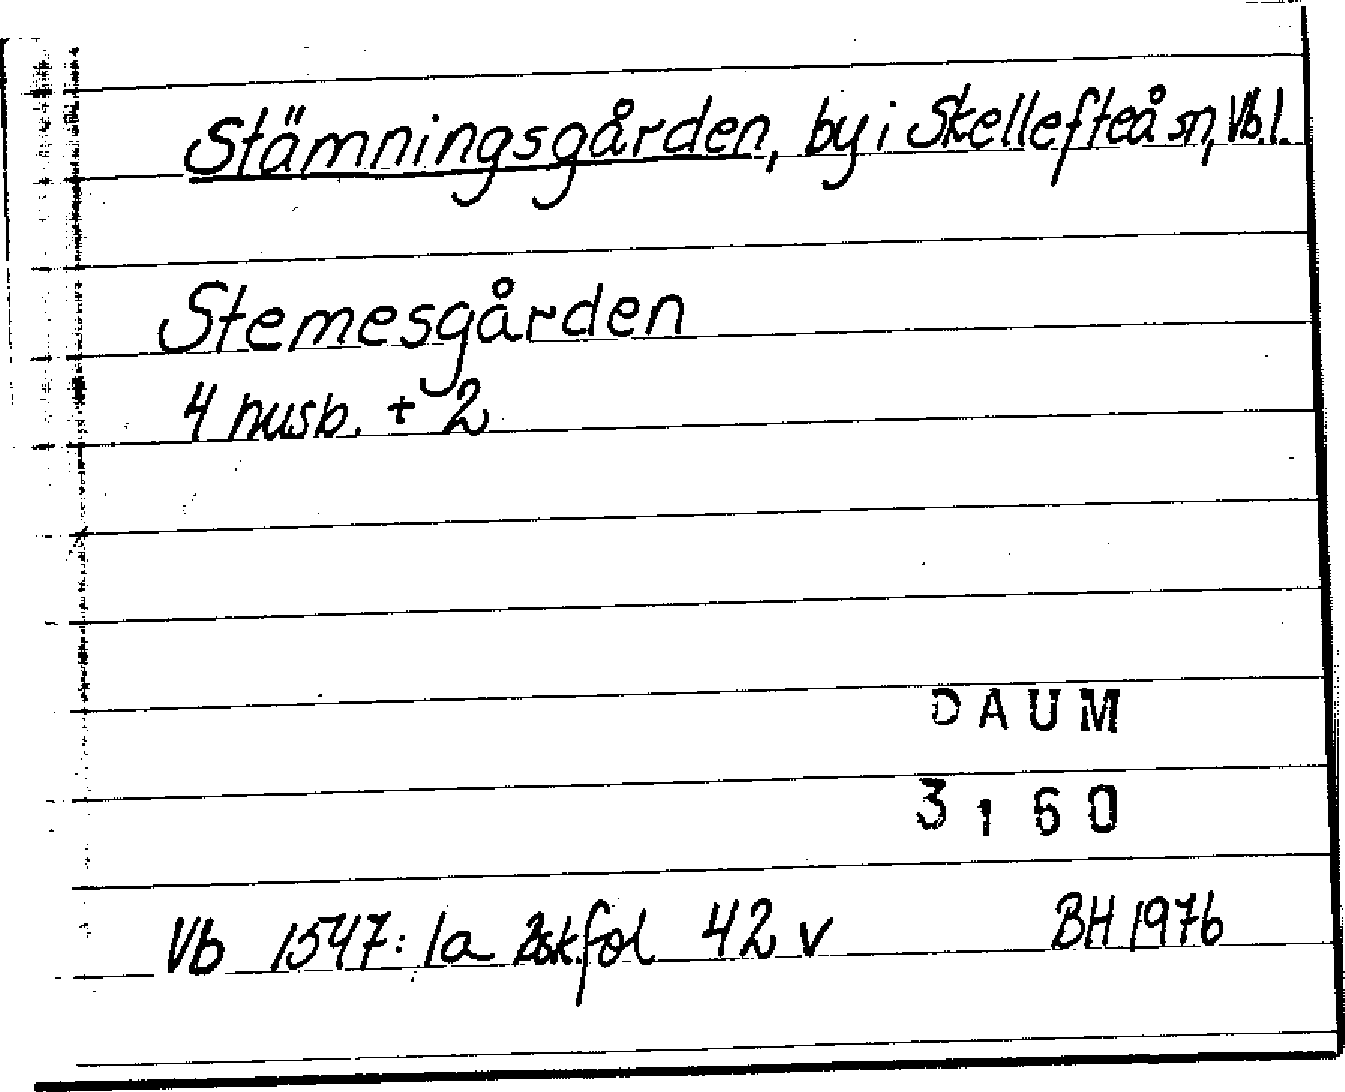 Stämningsgården, by i Skellefteå sn, Vb. l.
Stemesgården
4 husb. + 2
DAUM
3:60
Vb 1547: 1a fol 42 v BH 1976